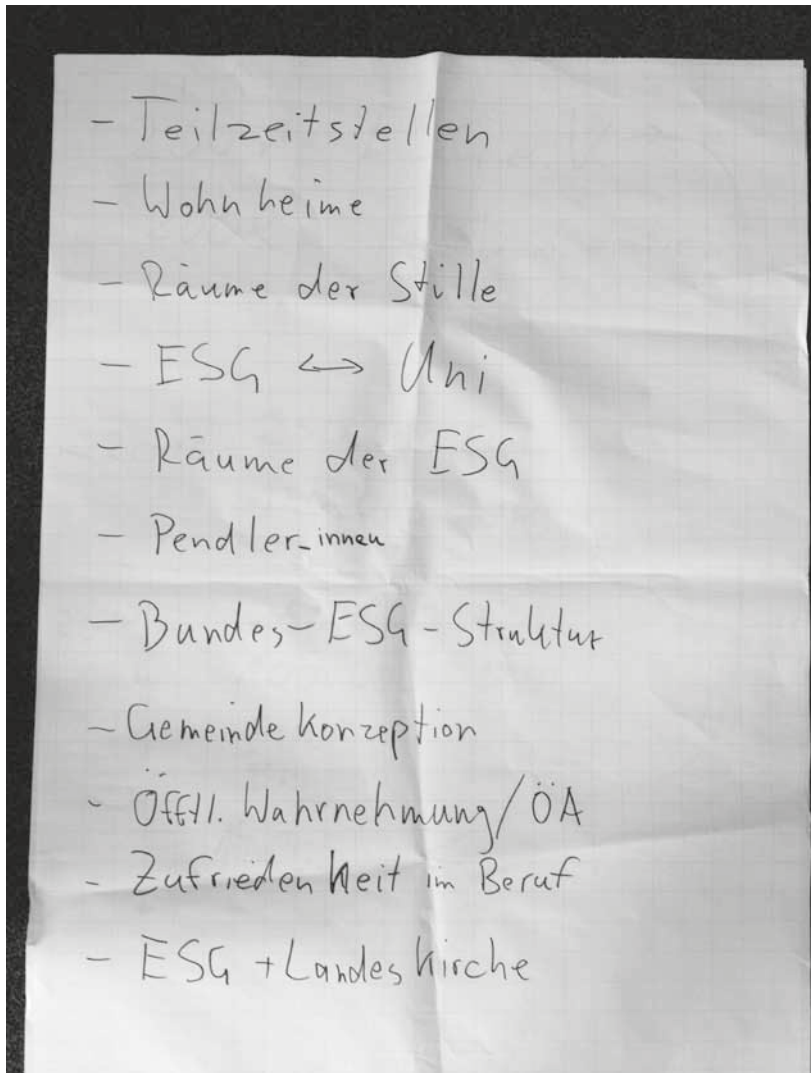 - Teilzeitstellen
- Wohnheime
- Räume der Stille
- ESG ↔ Uni
- Räume der ESG
- Pendler_innen
- Bundes-ESG-Struktur
- Gemeindekonzeption
- Öfftl. Wahrnehmung/ÖA
- Zufriedenheit im Beruf
- ESG + Landeskirche